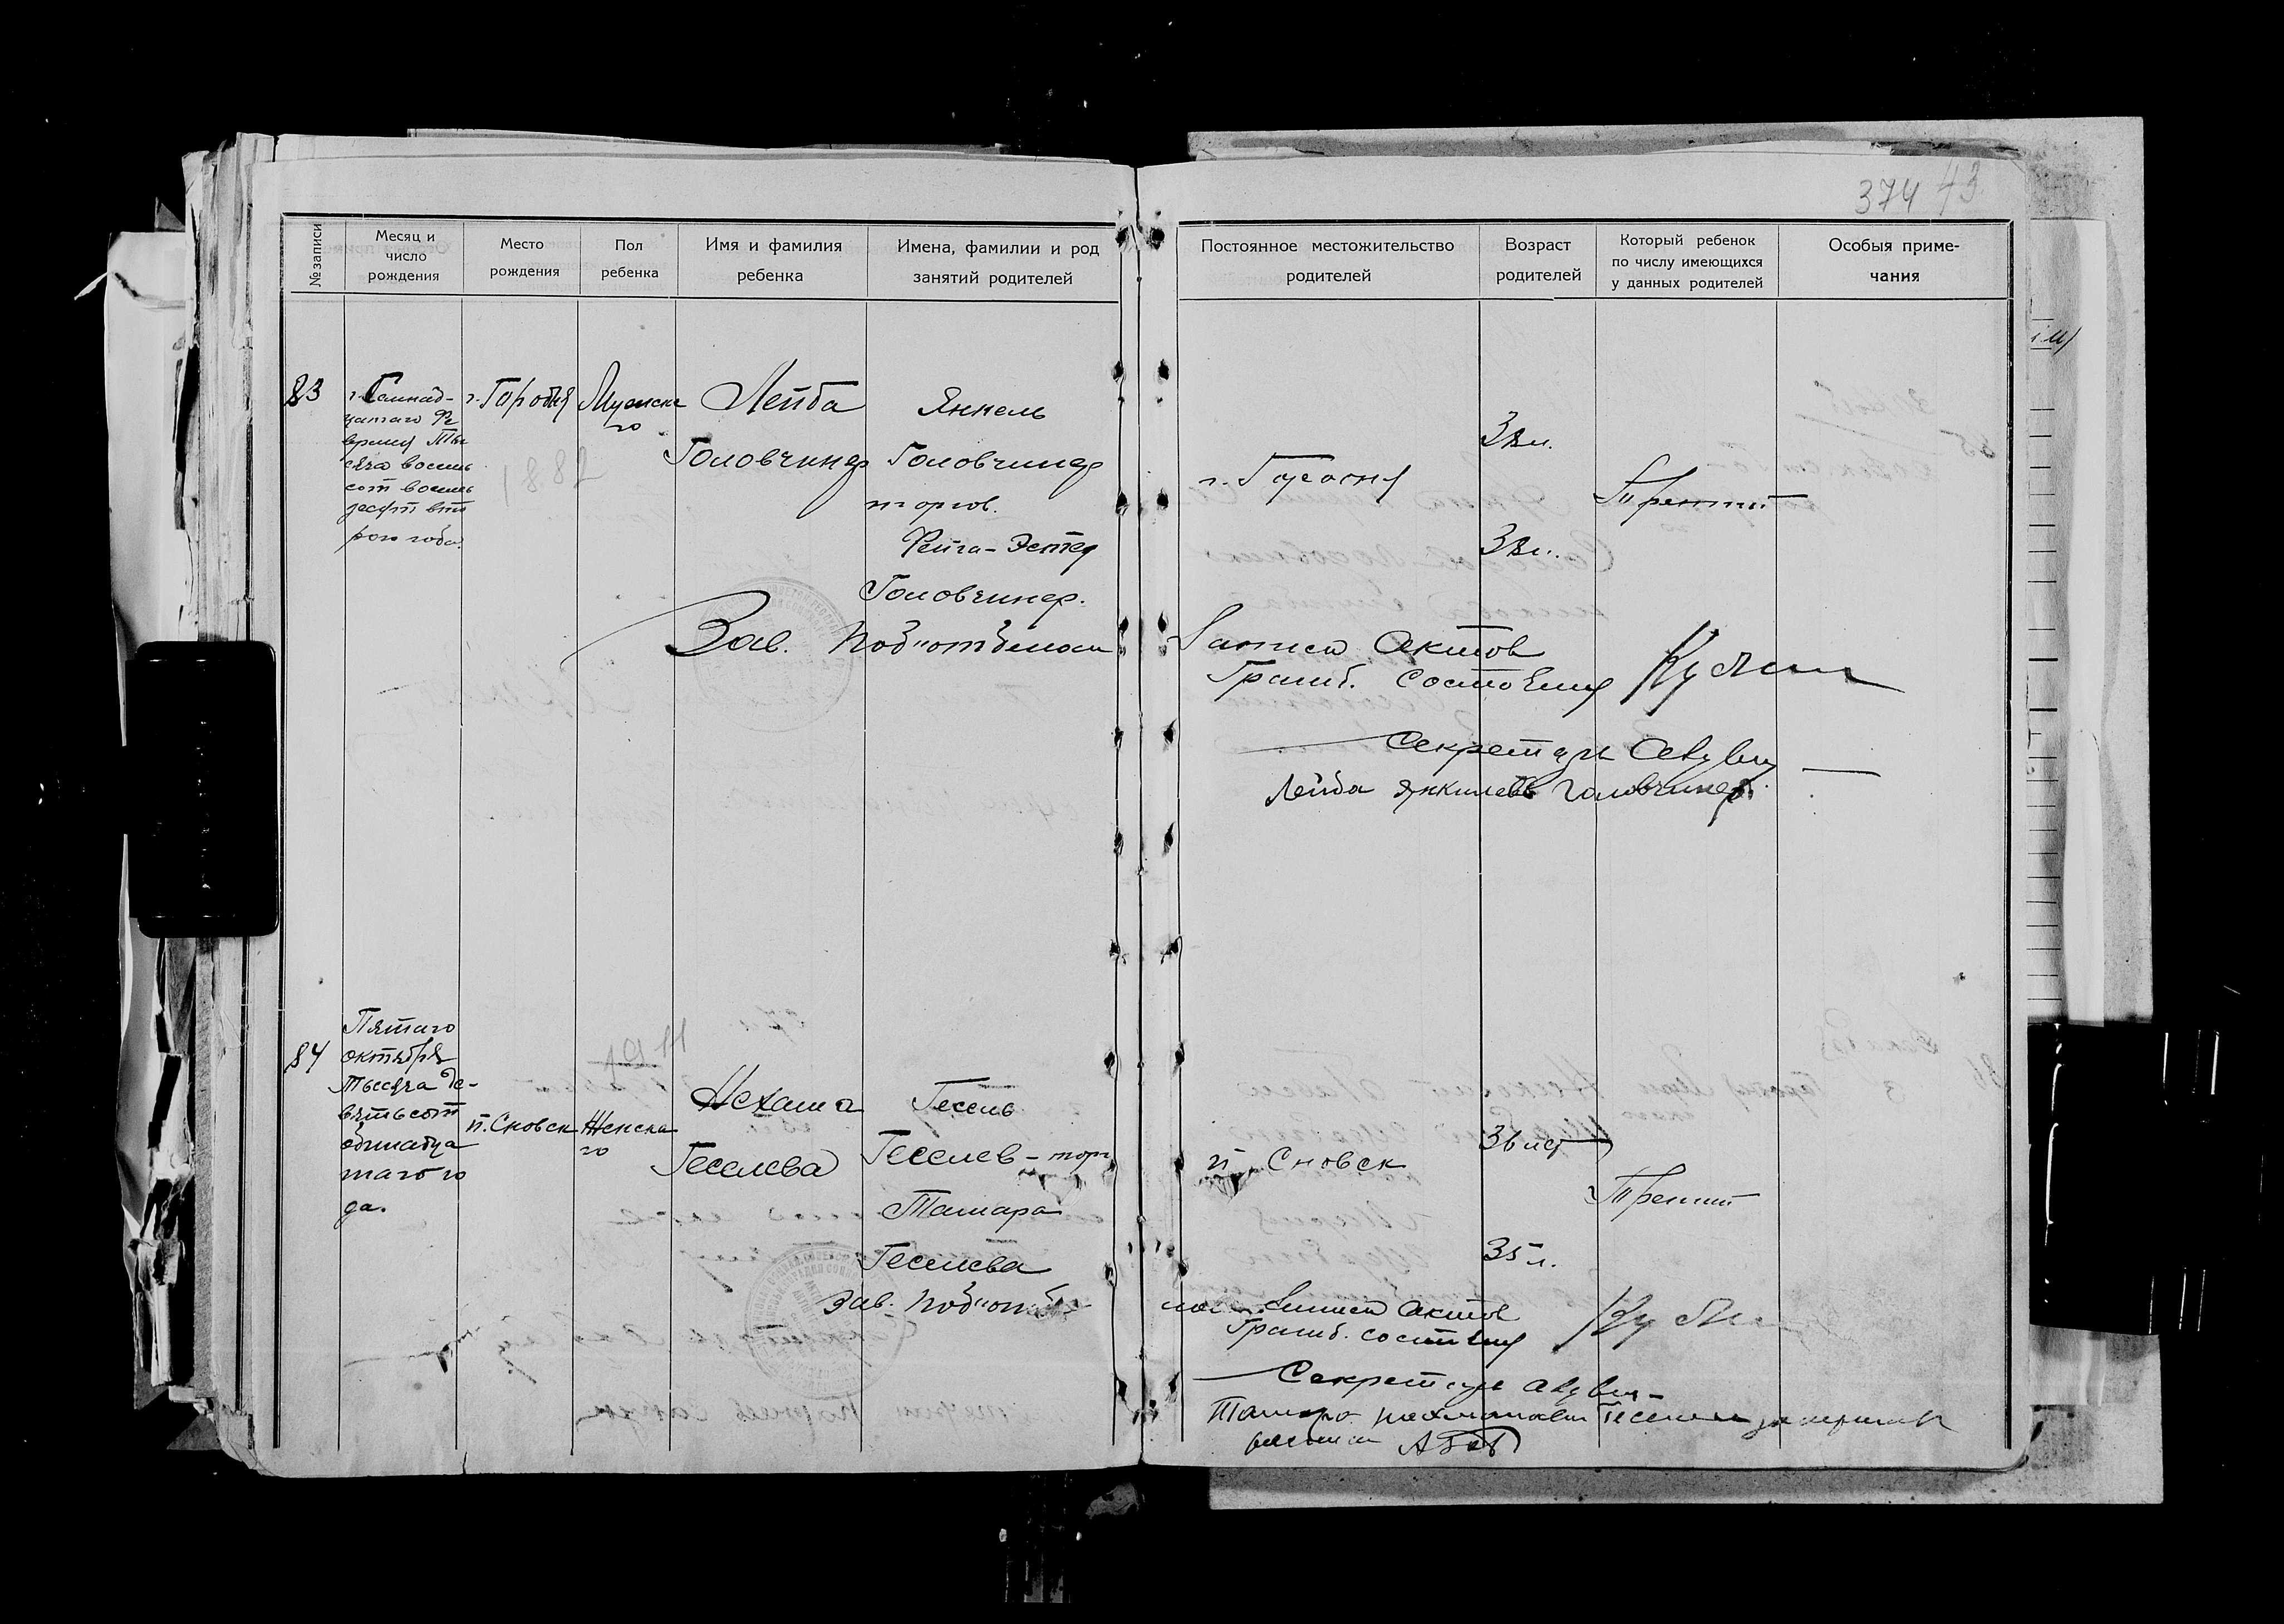 374 43
№ записи
Месяц и
число
рождения
Место
рождения
Пол
ребенка
Имя и фамилия
ребенка
Имена, фамилии и род
занятий родителей
Постоянное местожительство
родителей
Возраст
родителей
Который ребенок
по числу имеющихся
у данных родителей
Особыя приме-
чания
83
Семнад-
цатаго Фе
враля Ты
сяча восемь
сот восемь
десят вто
рого года.
г. Городня
Мужска
го
1882
Лейба
Головчинер
Янкель
Головчинер
торгов.
Фейга-Эстер
Головчинер.
г. Городня
38 л.
38 л.
Третий
Зав. Подотделом
Записи Актов
Гражд. Состояния
Секретарь
Лейба Янкилев Головчинер.
84
Пятаго
октября
тысяча де-
вятьсот
одинадца
таго го
да.
п. Сновск
Женска
го
1911
Нехама
Геселева
Гесель
Геселев - торг
Тамара
Геселева
п Сновск
36 лет
35 л.
Третий
Зав. Подотде
лом Записи Актов
Гражд. состояния
Секретарь
Тамара